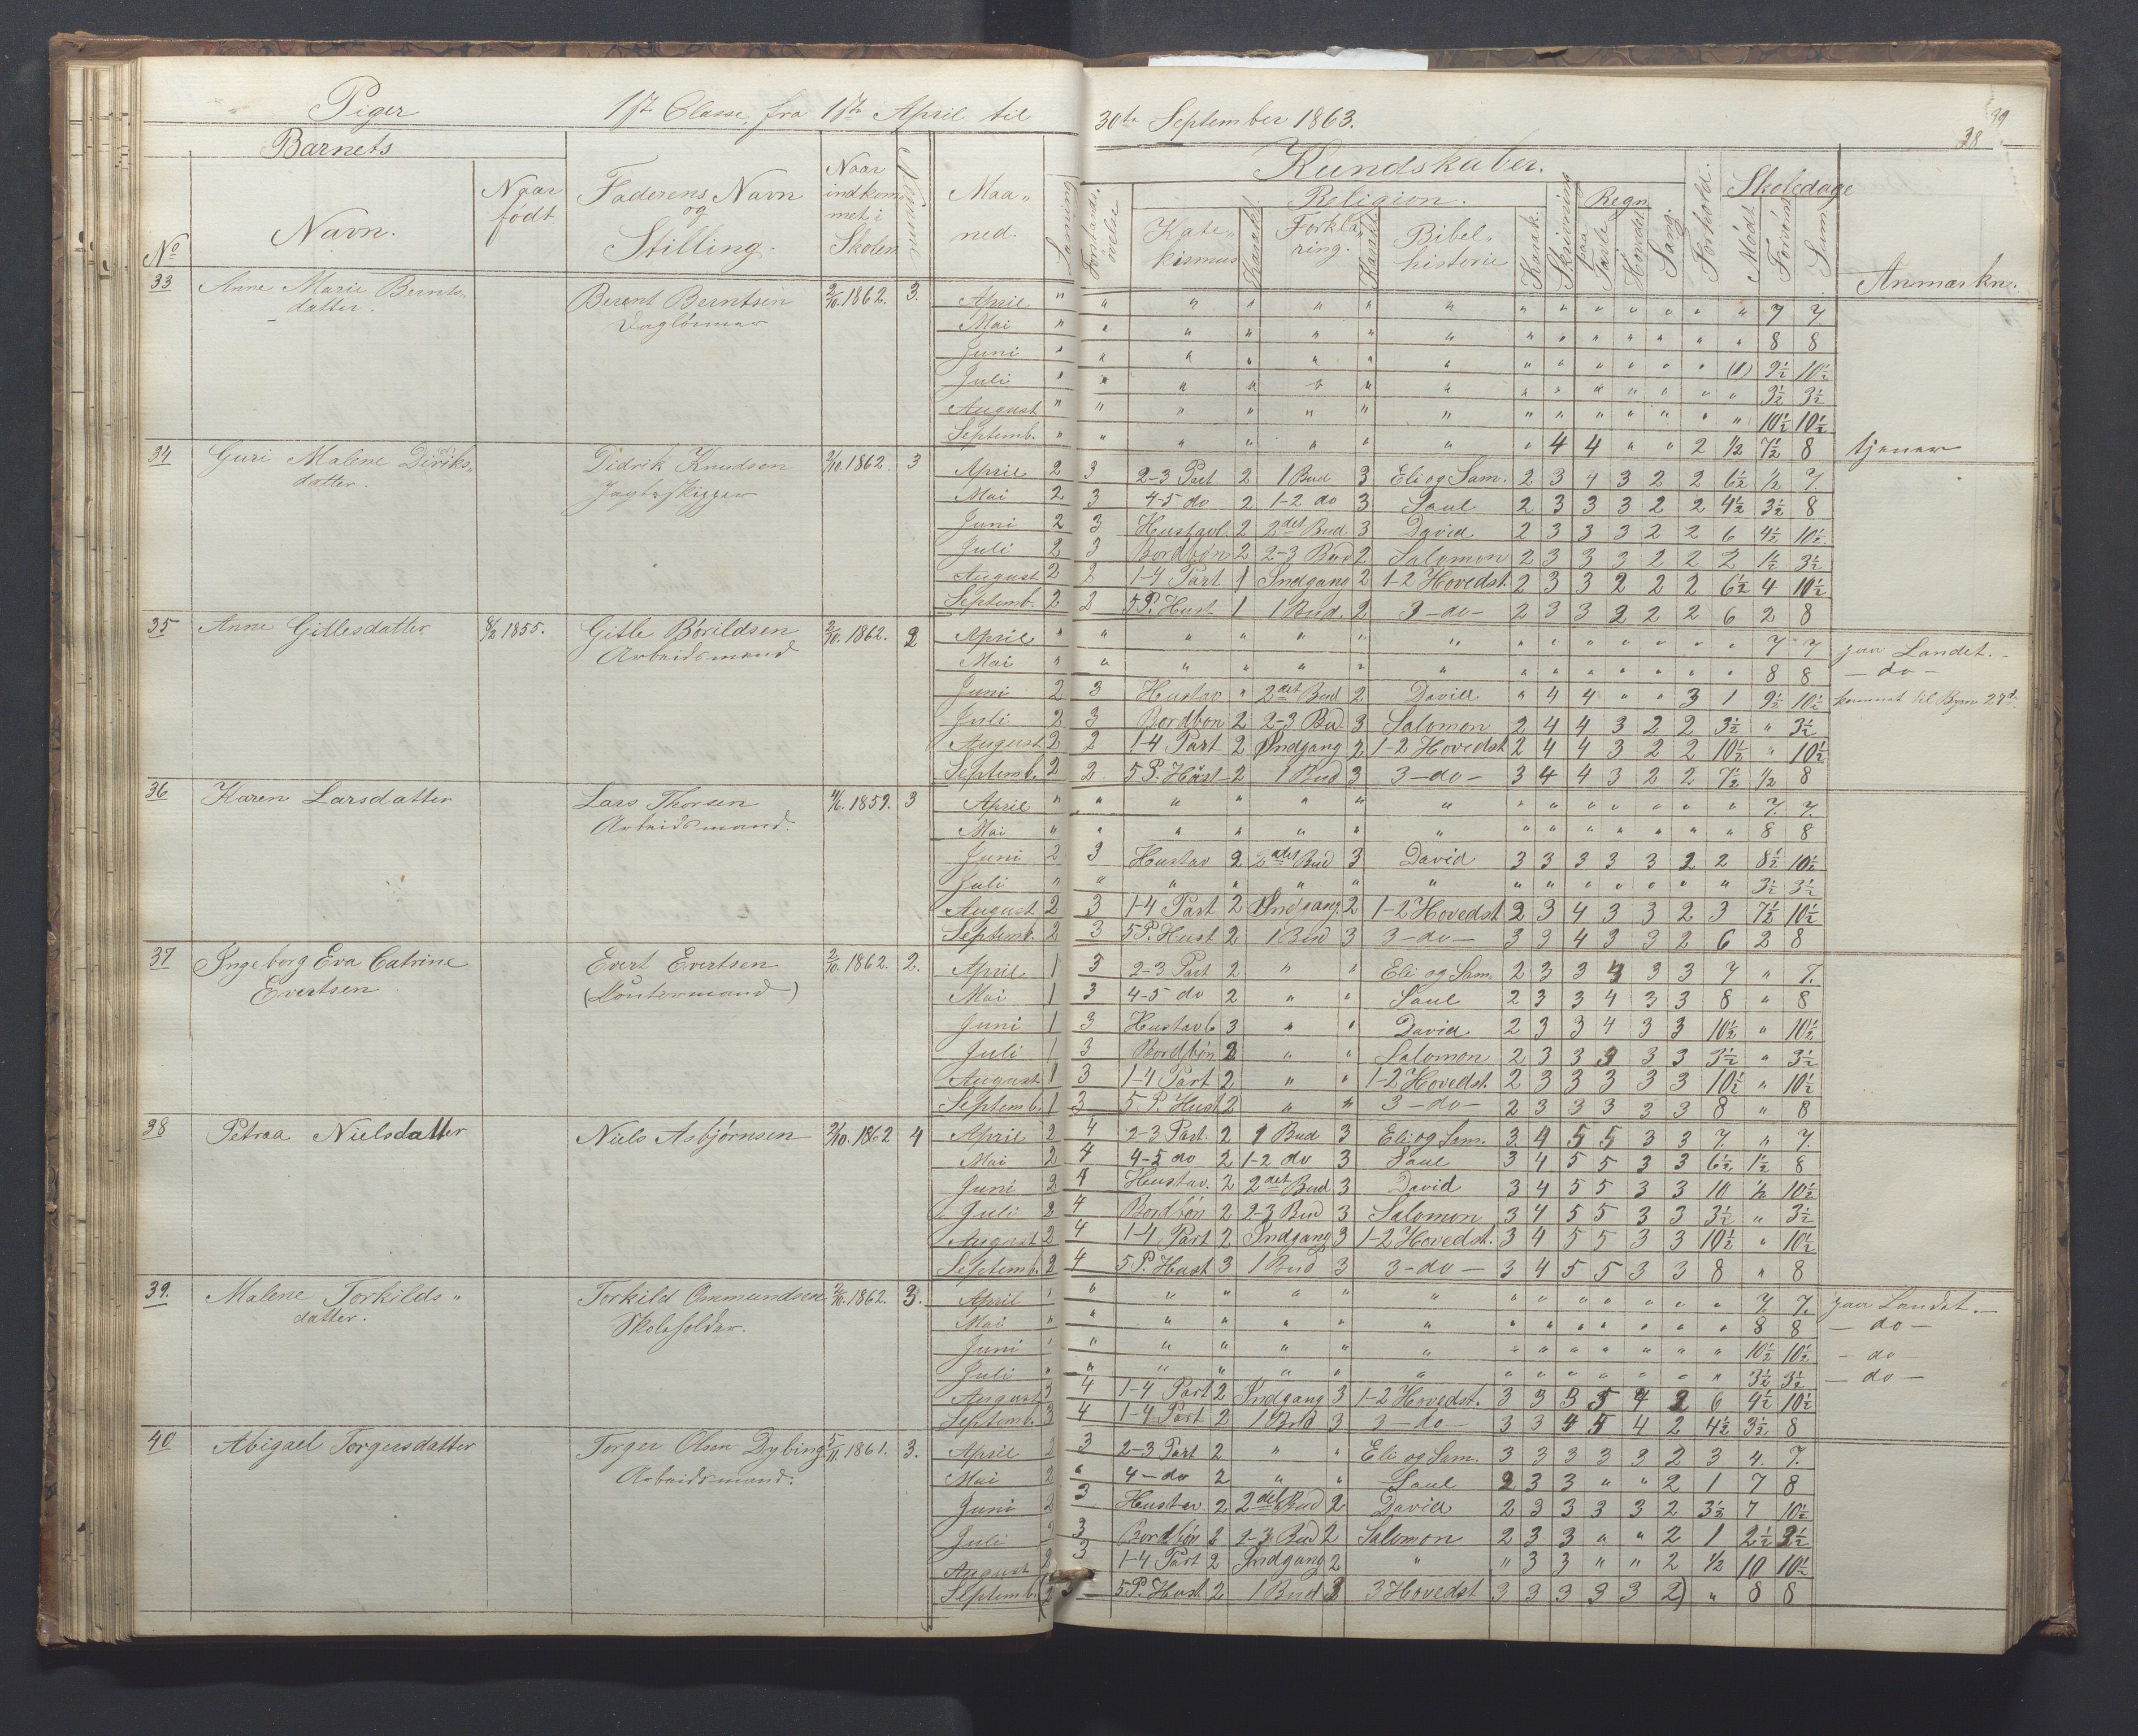 Piger 1ste Classe, fra 1ste April til 30te September 1863.
39
38
Barnets Kundskaber. Skoledage
No Navn. Naar født Faderens Navn og Stilling. Naar indkommet i Skolen Maaned. Læsning Forstandsøvelse Religion. Katekismus Karakt. Forklaring. Karakt. Bibelhistorie Karak. Skrivning Regn. paa Tavle Hovedet Sang. Forhold. Mødt Forsømt Sum Anmærkn.
33 Anne Marie Berntsdatter. Berent Berntsen Daglønner 2/10. 1862. 3.
April " " " " " " " " " " " " " " 7 7.
Mai " " " " " " " " " " " " " " 8 8
Juni " " " " " " " " " " " " " (1) 9½ 10½
Juli " " " " " " " " " " " " " " 3½ 3½
August " " " " " " " " " " " " " " 10½ 10½
Septemb. " " " " " " " " 4 4 " " 2 ½ 7½ 8 tjener
34 Guri Malene Diriksdatter. Didrik Knudsen Jagtskipper 2/10. 1862. 3
April 2 3 2-3 Part 2 1 Bud 3 Eli og Sam. 2 3 4 3 2 2 6½ ½ 7.
Mai 2 3 4-5 do 2 1-2 do 3 Saul 2 3 3 3 2 2 4½ 3½ 8
Juni 2 3 Hustavl. 2 2det Bud. 3 David 2 3 3 3 2 2 6 4½ 10½
Juli 2 3 Bordbøn 2 2-3 Bud 2 Salomon 2 3 3 3 2 2 2 1½ 3½
August 2 2 1-4 Part 1 Indgang 2 1-2 Hovedst. 2 3 3 2 2 2 6½ 4 10½
Septemb. 2 2 5 P. Hust 1 1 Bud. 2 3 - do - 2 3 3 2 2 2 6 2 8
35 Anne Gitlesdatter 8/2 1855. Gitle Børildsen Arbeidsmand 2/10. 1862. 2
April " " " " " " " " " " " " " " 7 7 paa Landet.
Mai " " " " " " " " " " " " " " 8 8 - do -
Juni 2 3 Hustav " 2det Bud 2 David " 4 4 " " 3 1 9½ 10½ kommet til Byen 27de
Juli 2 3 Bordbøn 2 2-3 Bud. 3 Salomon 2 4 4 3 2 2 3½ " 3½
August 2 2 1-4 Part 2 Indgang 2 1-2 Hovedst 2 4 4 3 2 2 10½ " 10½
Septemb. 2 2 5 P. Hust 2 1 Bud 3 3 - do - 3 4 4 3 2 2 7½ ½ 8
36 Karen Larsdatter Lars Thorsen Arbeidsmand. 1859. 3
April " " " " " " " " " " " " " " 7. 7.
Mai " " " " " " " " " " " " " " 8 8
Juni 2 3 Hustav 2 2det Bud 3 David 3 3 3 3 3 2 2 8½ 10½
Juli " " " " " " " " " " " " " " 3½ 3½
August 2 3 1-4 Part 2 Indgang. 2 1-2 Hovedst 2 3 4 3 3 2 3 7½ 10½
Septemb. 2 3 5 P. Hust 2 1 Bud 3 3 - do - 3 3 4 3 3 2 6 2 8
37 Ingeborg Eva Catrine Evertsen Evert Evertsen 2/10. 1862. 2.
April 1 3 2-3 Part 2 " " Eli og Sam. 2 3 3 4 3 3 7 " 7.
Mai 1 3 4-5 do 2 " " Saul 2 3 3 4 3 3 8 " 8
Juni 1 3 Hustavl 3 " " David 2 3 3 4 3 3 10½ " 10½
Juli 1 3 Bordbøn 2 " " Salomon 2 3 3 3 3 3 3½ " 3½
August 1 3 1-4 Part 2 " " 1-2 Hovedst. 2 3 3 3 3 3 10½ " 10½
Septemb. 1 3 5 P. Hust 2 " " 3 - do - 2 3 3 3 3 3 8 " 8
38 Petraa Nielsdatter Niels Asbjørnsen 2/10. 1862 4
April 2 4 2-3 Part. 2 1 Bud 3 Eli og Sam. 3 4 5 5 3 3 7. " 7.
Mai 2 4 4-5 do 2 1-2 do 3 Saul 3 4 5 5 3 3 6½ 1½ 8
Juni 2 4 Hustav. 2 2det Bud 3 David 3 4 5 5 3 3 10 ½ 10½
Juli 2 4 Bordbøn 2 2-3 Bud 3 Salomon 3 4 5 5 3 3 3½ " 3½
August 2 4 1-4 Part 2 Indgang 3 1-2 Hovedst. 3 4 5 5 3 3 10½ " 10½
Septemb. 2 4 5 P. Hust 3 1 Bud 3 3 - do - 3 4 5 5 3 3 8 " 8
39. Malene Torkildsdatter. Torkild Ommundsen Skoleholder. 2/10. 1862. 3.
April " " " " " " " " " " " " " " 7. 7. paa Landet.
Mai " " " " " " " " " " " " " " 8 8 - do -
Juni " " " " " " " " " " " " " " 10½ 10½ - do
Juli " " " " " " " " " " " " " " 3½ 3½ - do -
August 3 4 1-4 Part 2 Indgang 3 1-2 Hovedst. 3 3 3 5 4 2 6 4½ 10½
Septemb. 3 4 1-4 Part 2 1 Bud 3 3 - do - 3 3 4 5 4 2 4½ 3½ 8
40 Abigael Torgersdatter Torger Olsen Dybing Arbeidsmand. 5/11. 1861. 3.
April 2 3 2-3 Part 2 " " Eli og Sam. 3 3 3 3 3 2 3 4. 7.
Mai 2 " 4 - do 2 " " Saul 2 3 3 " " 2 1 7 8
Juni 2 3 Hustav. 2 2det Bud 2 David 2 3 3 3 3 2 3½ 7 10½
Juli 2 3 Bordbøn 2 2-3 Bud 2 Salomon 2 3 3 " " 2 1 2½ 3½
August 2 3 1-4 Part 2 Indgang 2 " " 3 3 " " 2 ½ 10 10½
Septemb. (2 5 P. Hust 2 1 Bud 3 3 Hovedst 3 3 3 3 3 2) " 8 8